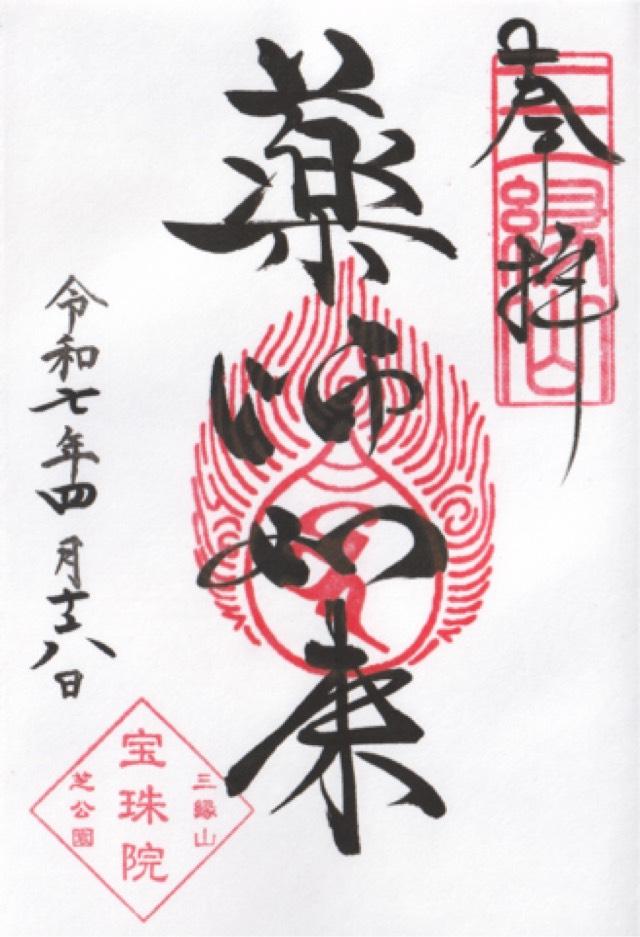 奉拝
三縁山
薬師如来
令和七年四月十八日
三縁山
宝珠院
芝公園